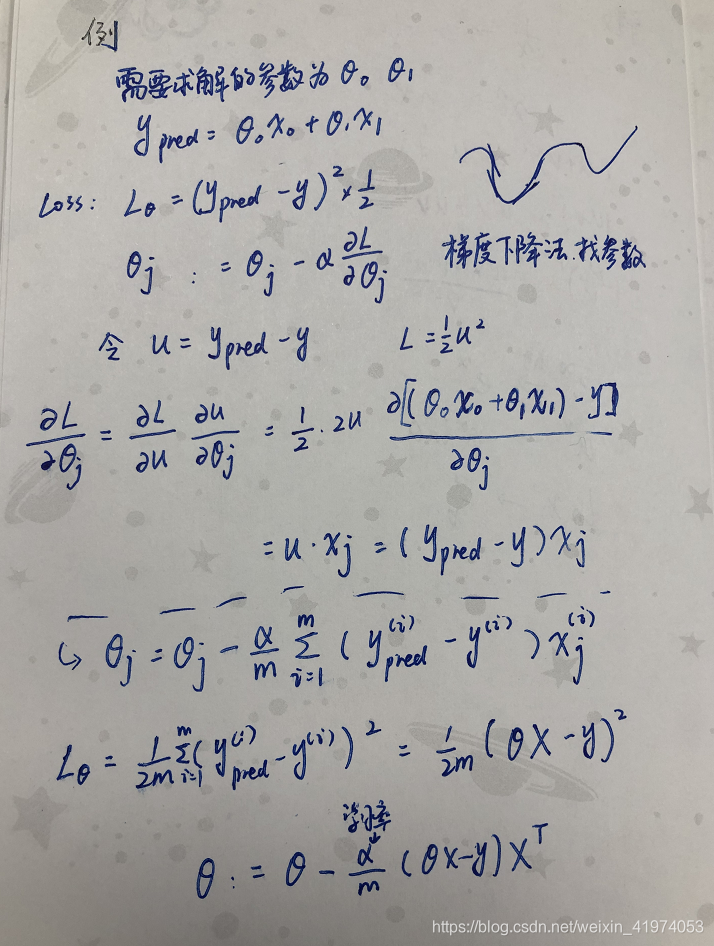 例
需要求解的参数为 θ₀ θ₁
y_pred = θ₀x₀ + θ₁x₁
Loss: L_θ = (y_pred - y)² × 1/2
θ_j := θ_j - α ∂L/∂θ_j
梯度下降法.找参数
令 u = y_pred - y L = 1/2 u²
∂L/∂θ_j = ∂L/∂u ∂u/∂θ_j = 1/2 · 2u ∂[(θ₀x₀ + θ₁x₁) - y]/∂θ_j
= u · x_j = (y_pred - y) x_j
↳ θ_j = θ_j - α/m Σ_{i=1}^{m} (y_pred^{(i)} - y^{(i)}) x_j^{(i)}
L_θ = 1/2m Σ_{i=1}^{m} (y_pred^{(i)} - y^{(i)})² = 1/2m (θX - y)²
学习率
θ := θ - α/m (θX - y) X^T
https://blog.csdn.net/weixin_41974053